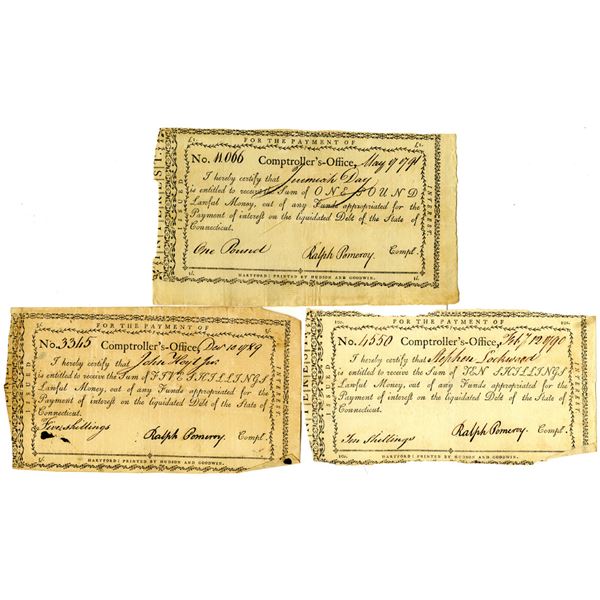 FOR THE PAYMENT OF
£1.
No. 4066 Comptroller's-Office, May 9 1791
I hereby certify that Jeremiah Day
is entitled to receive the Sum of ONE POUND
Lawful Money, out of any Funds appropriated for the
Payment of interest on the liquidated Debt of the State of
Connecticut.
One Pound Ralph Pomeroy. Compt.
HARTFORD: PRINTED BY HUDSON AND GOODWIN.
ISSUED
INTEREST.
FOR THE PAYMENT OF
No. 3345 Comptroller's-Office, Decr 10 1789
I hereby certify that John Hoyt Jur
is entitled to receive the Sum of FIVE SHILLINGS
Lawful Money, out of any Funds appropriated for the
Payment of interest on the liquidated Debt of the State of
Connecticut.
Five shillings
Ralph Pomeroy. Compt.
HARTFORD: PRINTED BY HUDSON AND GOODWIN.
ISSUED
INTEREST.
FOR THE PAYMENT OF
10s.
No. 4550 Comptroller's-Office, Feby 12 1790
I hereby certify that Stephen Lockwood
is entitled to receive the Sum of TEN SHILLINGS
Lawful Money, out of any Funds appropriated for the
Payment of interest on the liquidated Debt of the State of
Connecticut.
Ten Shillings Ralph Pomeroy. Compt.
10s. HARTFORD: PRINTED BY HUDSON AND GOODWIN. 10s.
ISSUED
INTEREST.